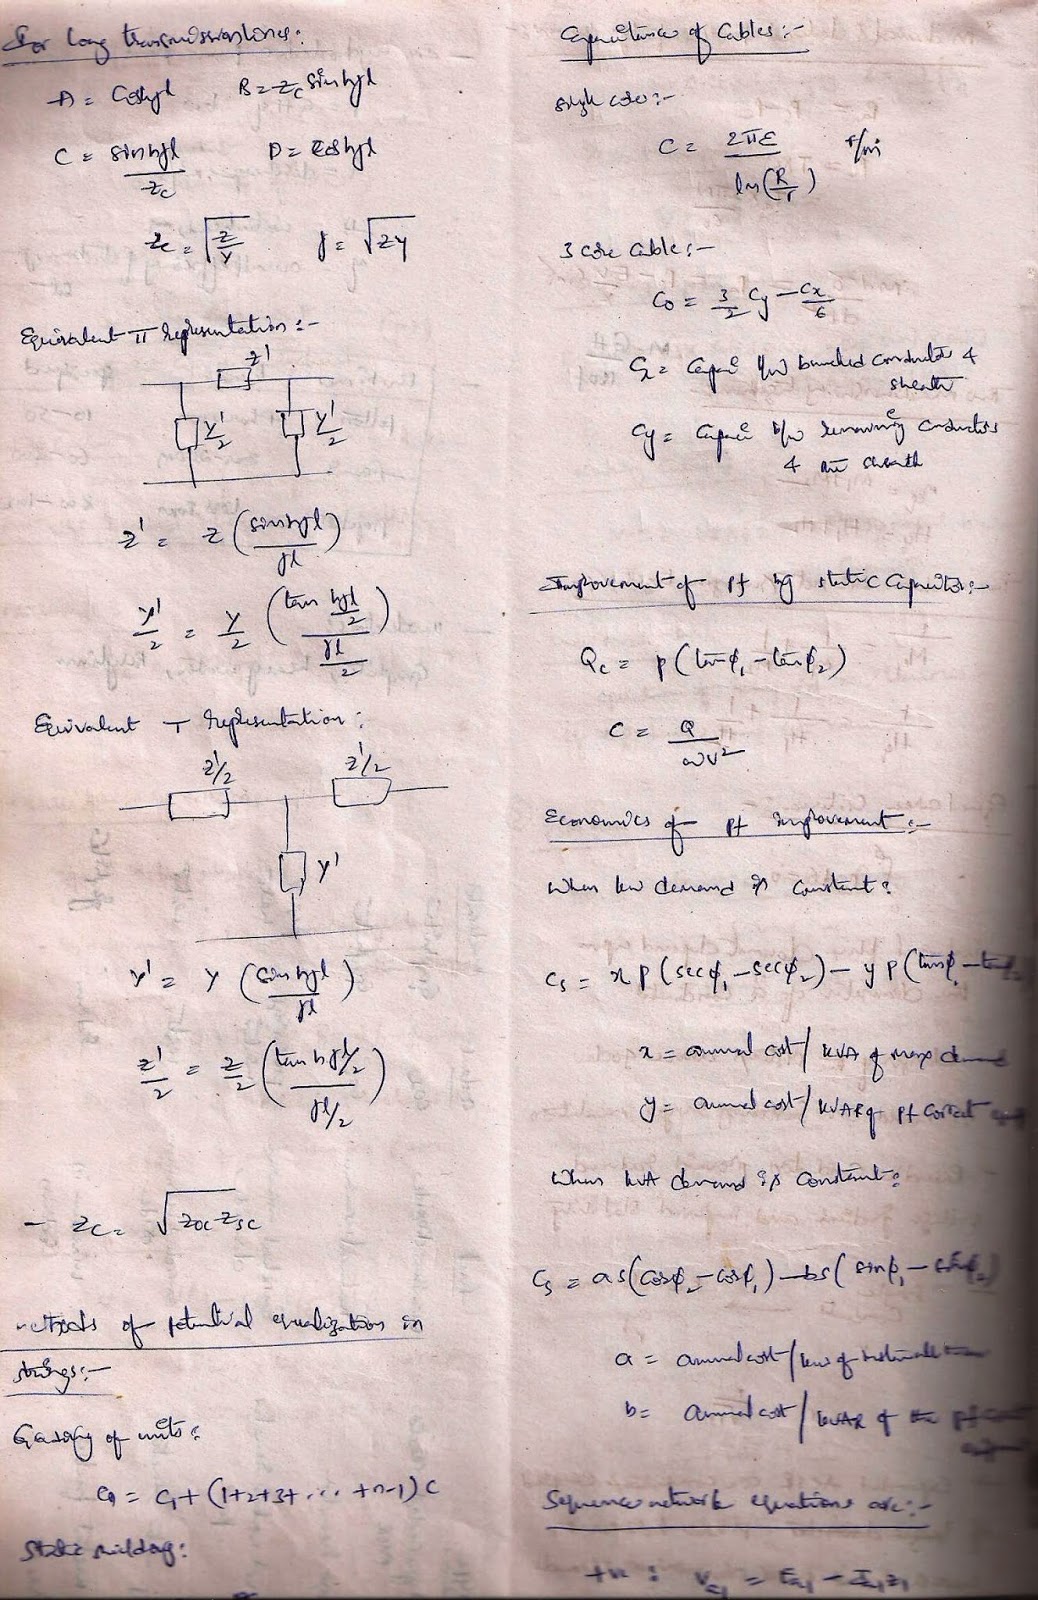 For long transmission lines:
A = Coshγl B = Zc sinhγl
C = sinhγl / Zc D = Coshγl
Zc = √(Z/Y) γ = √ZY
Equivalent π representation:-
Z'
Y'/2 Y'/2
Z' = Z (sinhγl / γl)
Y'/2 = Y/2 (tanh γl/2 / γl/2)
Equivalent T representation:
Z'/2 Z'/2
Y'
Y' = Y (sinhγl / γl)
Z'/2 = Z/2 (tanhγl/2 / γl/2)
- Zc = √Zoc Zsc
methods of potential equalization in
strings:-
Grading of units:
Cn = C1 + (1+2+3+ ... +n-1) C
Static shielding:
Capacitance of Cables:-
single core:-
C = 2πε / ln(R/r) F/m
3 core Cable:-
C0 = 3/2 Cy - Cx/6
Cx = Capaci b/w bunched conductors &
sheath
Cy = Capaci b/w remaining conductors
& the sheath
Improvement of pf by static Capacitor:-
Qc = P(tanφ1 - tanφ2)
C = Q / ωV²
Economics of pf improvement:-
When kw demand is Constant:
Cs = x P (secφ1 - secφ2) - y P (tanφ1 - tanφ2
x = annual cost / kVA of max demand
y = annual cost / kVAR of pf Correct
When kVA demand is constant:
Cs = as(Cosφ2 - Cosφ1) - bs( sinφ1 - sinφ2)
a = annual cost / kw of
b = annual cost / kVAR of the pf
Sequence network equations are:-
+ve : Va1 = Ea1 - Ia1Z1